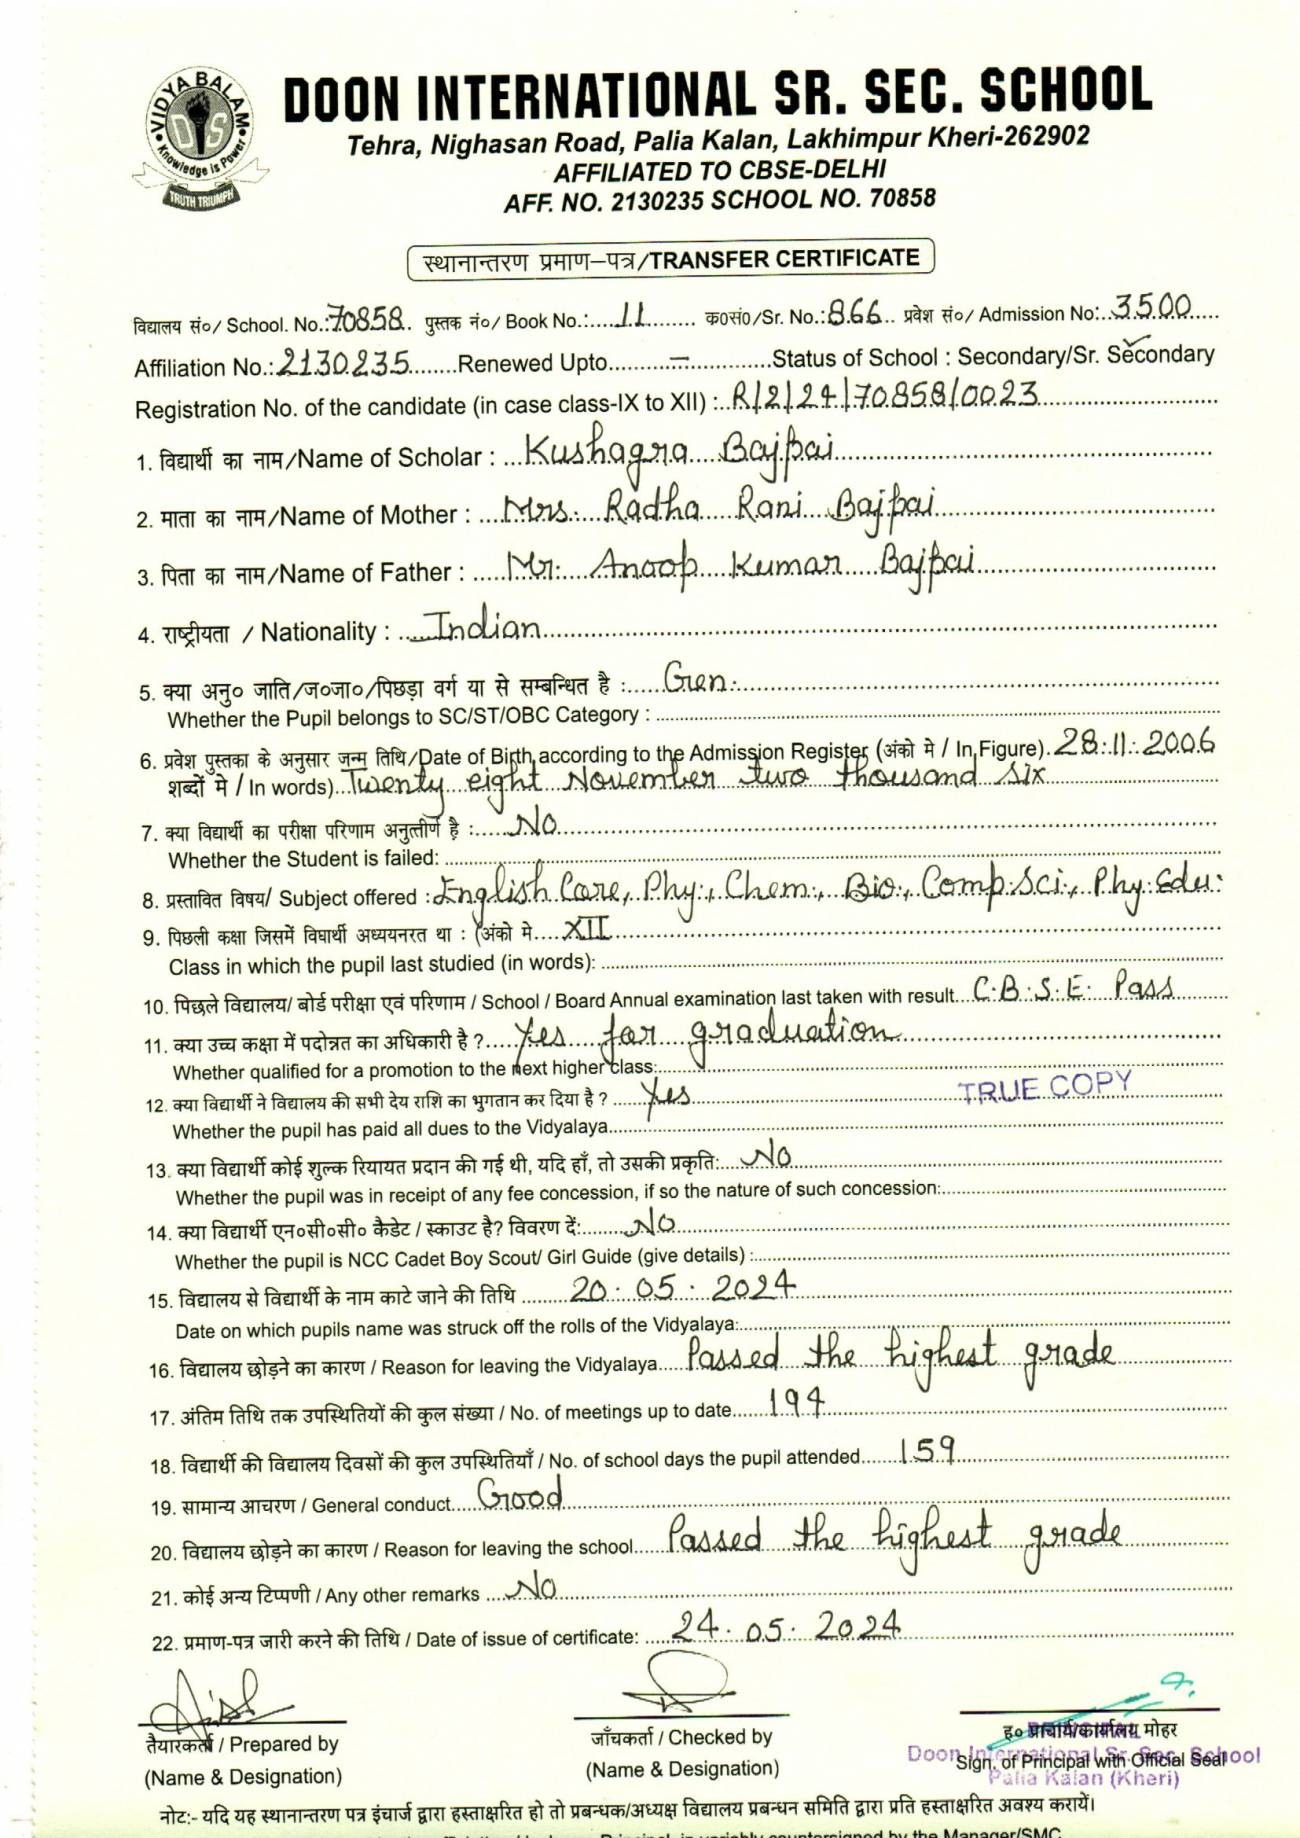 VIDYA BALAM
DIS
Knowledge is Power
TRUTH TRIUMPH
DOON INTERNATIONAL SR. SEC. SCHOOL
Tehra, Nighasan Road, Palia Kalan, Lakhimpur Kheri-262902
AFFILIATED TO CBSE-DELHI
AFF. NO. 2130235 SCHOOL NO. 70858
स्थानान्तरण प्रमाण–पत्र/TRANSFER CERTIFICATE
विद्यालय सं०/ School. No.:70858. पुस्तक नं०/ Book No.:.....11........ क०सं०/Sr. No.:866.. प्रवेश सं०/ Admission No:..3500....
Affiliation No.:2130235........Renewed Upto.........–...........Status of School : Secondary/Sr. Secondary
Registration No. of the candidate (in case class-IX to XII) :..R/2/24/70858/0023
1. विद्यार्थी का नाम/Name of Scholar : ...Kushagra Bajpai
2. माता का नाम/Name of Mother : ....Mrs. Radha Rani Bajpai
3. पिता का नाम/Name of Father : .....Mr. Anoop Kumar Bajpai
4. राष्ट्रीयता / Nationality : ....Indian
5. क्या अनु० जाति/ज०जा०/पिछड़ा वर्ग या से सम्बन्धित है :.....Gen.
Whether the Pupil belongs to SC/ST/OBC Category :
6. प्रवेश पुस्तका के अनुसार जन्म तिथि/Date of Birth according to the Admission Register (अंको मे / In Figure). 28.11.2006
शब्दों मे / In words)..Twenty eight November two thousand six
7. क्या विद्यार्थी का परीक्षा परिणाम अनुत्तीर्ण है :.....No
Whether the Student is failed:
8. प्रस्तावित विषय/ Subject offered :English Core, Phy., Chem., Bio., Comp.Sci., Phy.Edu.
9. पिछली कक्षा जिसमें विघार्थी अध्ययनरत था : (अंको मे....XII
Class in which the pupil last studied (in words):
10. पिछले विद्यालय/ बोर्ड परीक्षा एवं परिणाम / School / Board Annual examination last taken with result...C.B.S.E. Pass
11. क्या उच्च कक्षा में पदोन्नत का अधिकारी है ?.....Yes for graduation
Whether qualified for a promotion to the next higher class:
12. क्या विद्यार्थी ने विद्यालय की सभी देय राशि का भुगतान कर दिया है ? .....Yes
TRUE COPY
Whether the pupil has paid all dues to the Vidyalaya
13. क्या विद्यार्थी कोई शुल्क रियायत प्रदान की गई थी, यदि हाँ, तो उसकी प्रकृति:...No
Whether the pupil was in receipt of any fee concession, if so the nature of such concession:
14. क्या विद्यार्थी एन०सी०सी० कैडेट / स्काउट है? विवरण दें:.......No
Whether the pupil is NCC Cadet Boy Scout/ Girl Guide (give details) :
15. विद्यालय से विद्यार्थी के नाम काटे जाने की तिथि ........20.05.2024
Date on which pupils name was struck off the rolls of the Vidyalaya:
16. विद्यालय छोड़ने का कारण / Reason for leaving the Vidyalaya....Passed the highest grade
17. अंतिम तिथि तक उपस्थितियों की कुल संख्या / No. of meetings up to date......194
18. विद्यार्थी की विद्यालय दिवसों की कुल उपस्थितियाँ / No. of school days the pupil attended.......159
19. सामान्य आचरण / General conduct....Good
20. विद्यालय छोड़ने का कारण / Reason for leaving the school.....Passed the highest grade
21. कोई अन्य टिप्पणी / Any other remarks ....No
22. प्रमाण-पत्र जारी करने की तिथि / Date of issue of certificate: .....24.05.2024
तैयारकर्ता / Prepared by
(Name & Designation)
जाँचकर्ता / Checked by
(Name & Designation)
ह० प्राचार्य/कार्यालय मोहर
Sign. of Principal with Official Seal
PRINCIPAL
Doon International Sr. Sec. School
Palia Kalan (Kheri)
नोटः- यदि यह स्थानान्तरण पत्र इंचार्ज द्वारा हस्ताक्षरित हो तो प्रबन्धक/अध्यक्ष विद्यालय प्रबन्धन समिति द्वारा प्रति हस्ताक्षरित अवश्य करायें।
countersigned by the Manager/SMC